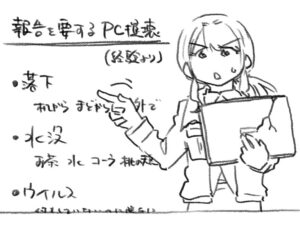 報告を要するPC損壊
(経験より)
・落下
机から まどから 外で
・水没
お茶 水 コーラ
・ウイルス